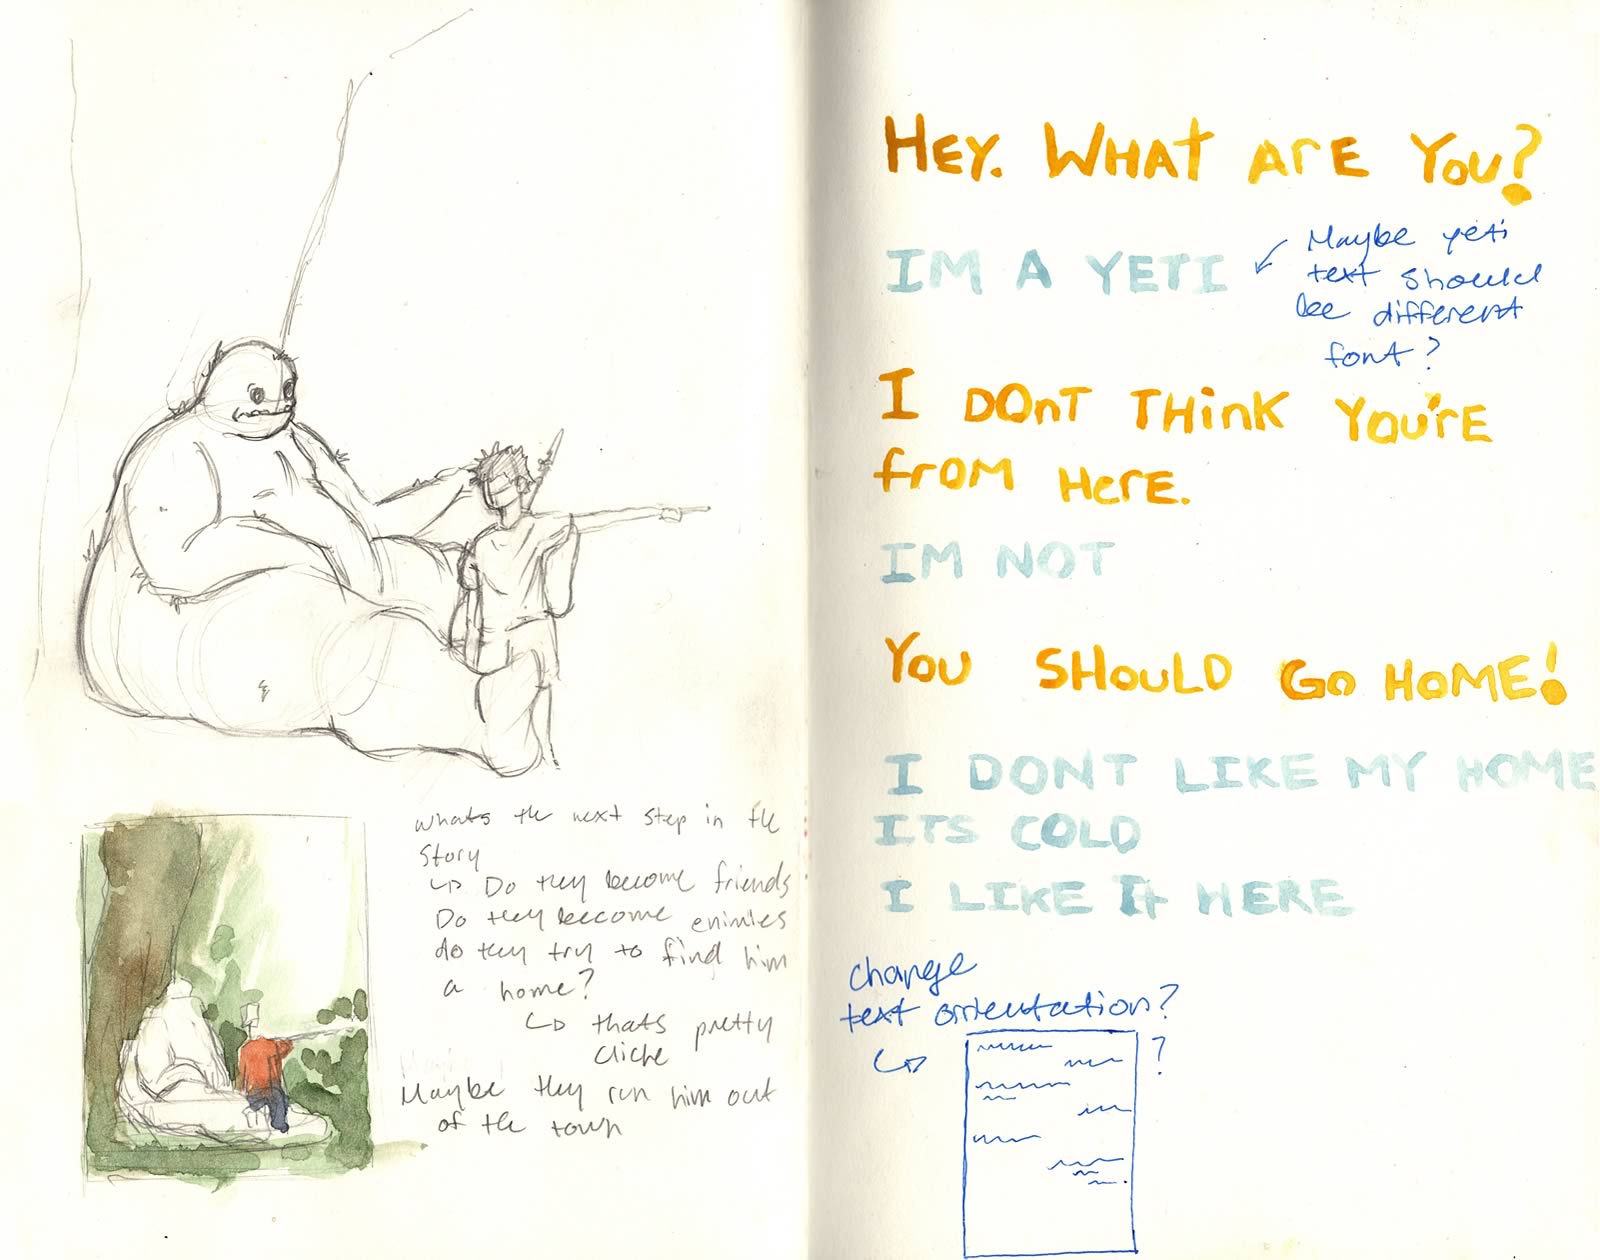 whats the next step in the
story
↳ Do they become friends
Do they become enimies
do they try to find him
a home?
↳ thats pretty
cliche
Maybe they run him out
of the town
HEY. WHAT ArE YOU?
IM A YETI
Maybe yeti
text should
be different
font?
I DOnT THinK YOU'rE
frOM HErE.
IM NOT
YOU SHOULD GO HOME!
I DONT LIKE MY HOME
ITS COLD
I LIKE It HERE
change
text orientation?
↳
?